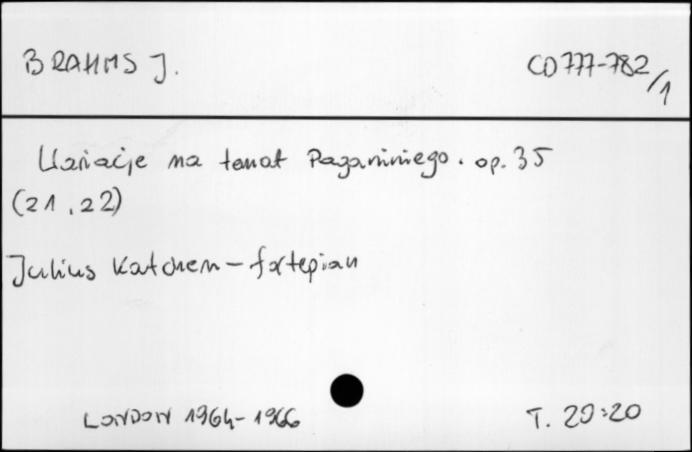 BRAHMS J.
CD 777-782/1
Wariacje na temat Paganiniego. op. 35
(21, 22)
Julius Katchen - fortepian
LONDON 1964-1966
T. 20:20